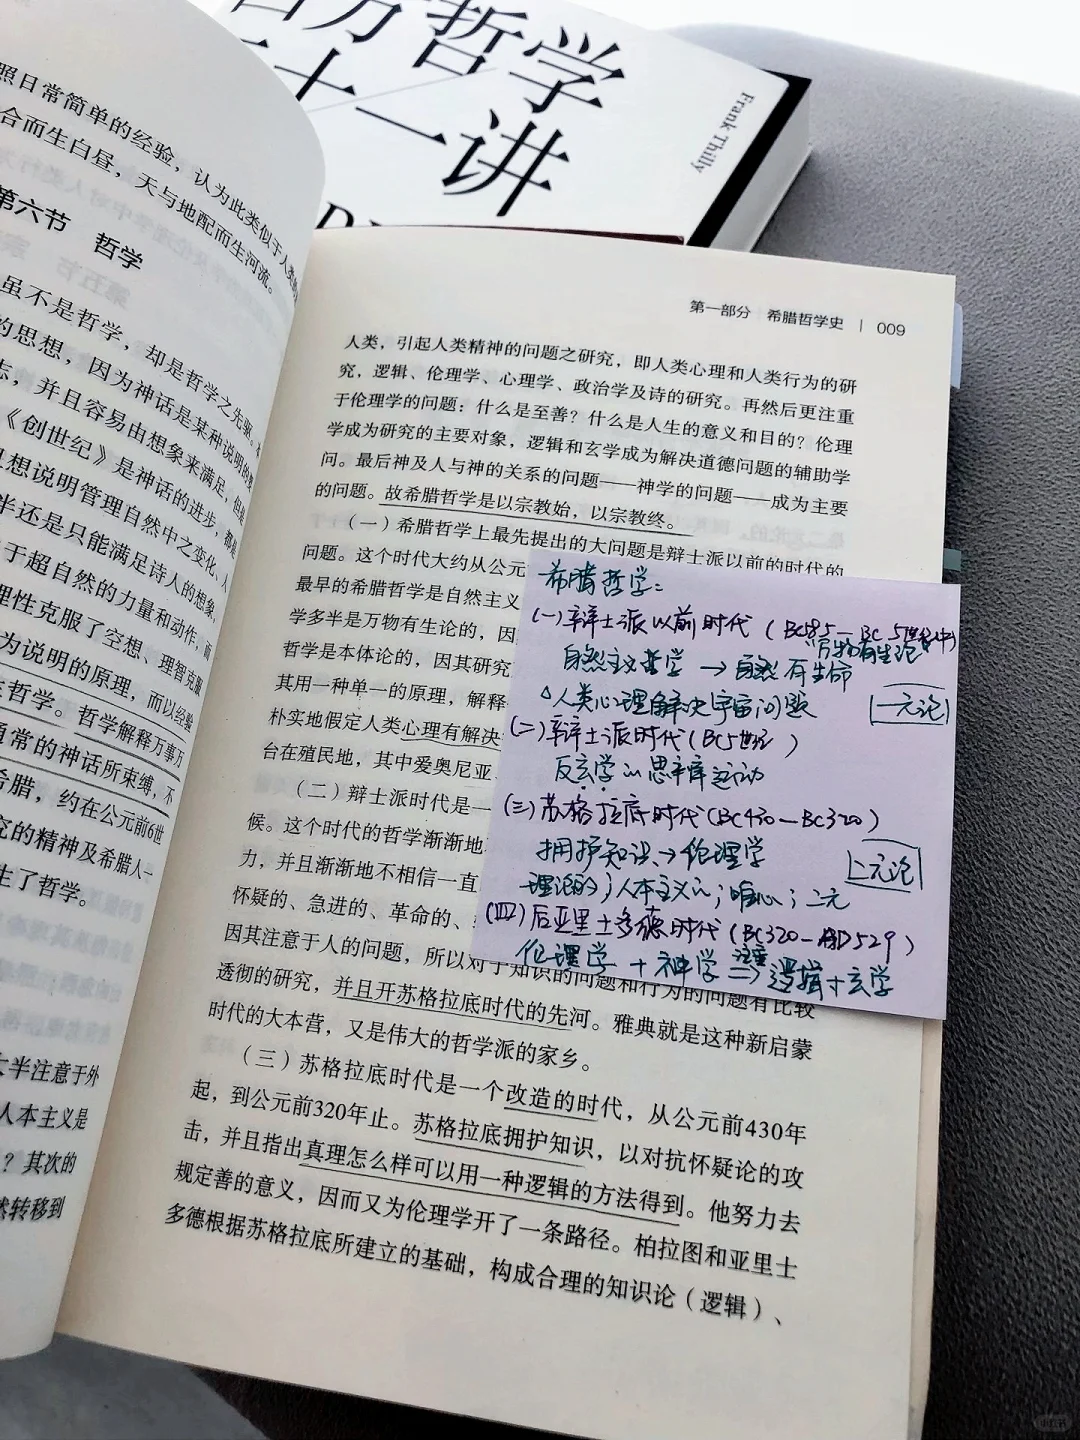 哲学
十一讲
Frank Thilly
照日常简单的经验，认为此类似于人类的
合而生白昼，天与地配而生河流。
第六节 哲学
虽不是哲学，却是哲学之先驱。
的思想，因为神话是某种说明的
志，并且容易由想象来满足，但是
《创世纪》是神话的进步，都是
想说明管理自然中之变化、人
半还是只能满足诗人的想象，
于超自然的力量和动作，而
理性克服了空想、理智克服
为说明的原理，而以经验
哲学。哲学解释万事万
通常的神话所束缚，不
希腊，约在公元前6世
究的精神及希腊人一
生了哲学。
大半注意于外
人本主义是
？其次的
转移到
第一部分 希腊哲学史 | 009
人类，引起人类精神的问题之研究，即人类心理和人类行为的研
究，逻辑、伦理学、心理学、政治学及诗的研究。再然后更注重
于伦理学的问题：什么是至善？什么是人生的意义和目的？伦理
学成为研究的主要对象，逻辑和玄学成为解决道德问题的辅助学
问。最后神及人与神的关系的问题——神学的问题——成为主要
的问题。故希腊哲学是以宗教始，以宗教终。
（一）希腊哲学上最先提出的大问题是辩士派以前的时代的
问题。这个时代大约从公元
最早的希腊哲学是自然主义
学多半是万物有生论的，因
哲学是本体论的，因其研究
其用一种单一的原理，解释
朴实地假定人类心理有解决
台在殖民地，其中爱奥尼亚
（二）辩士派时代是一
候。这个时代的哲学渐渐地
力，并且渐渐地不相信一直
怀疑的、急进的、革命的、
因其注意于人的问题，所以对于知识的问题和行为的问题有比较
透彻的研究，并且开苏格拉底时代的先河。雅典就是这种新启蒙
时代的大本营，又是伟大的哲学派的家乡。
（三）苏格拉底时代是一个改造的时代，从公元前430年
起，到公元前320年止。苏格拉底拥护知识，以对抗怀疑论的攻
击，并且指出真理怎么样可以用一种逻辑的方法得到。他努力去
规定善的意义，因而又为伦理学开了一条路径。柏拉图和亚里士
多德根据苏格拉底所建立的基础，构成合理的知识论（逻辑）、
希腊哲学：
(一) 辩士派以前时代（BC585—BC 5世纪中）
"万物有生论
自然主义哲学 → 自然有生命
△人类心理解决宇宙问题
一元论
(二) 辩士派时代(BC5世纪)
反玄学 思辨运动
(三) 苏格拉底时代(BC430—BC320)
拥护知识 → 伦理学
二元论
理论的；人本主义；唯心；二元
(四) 后亚里士多德时代（BC320—AD529）
伦理学 + 神学 注重→ 逻辑+玄学
小红书